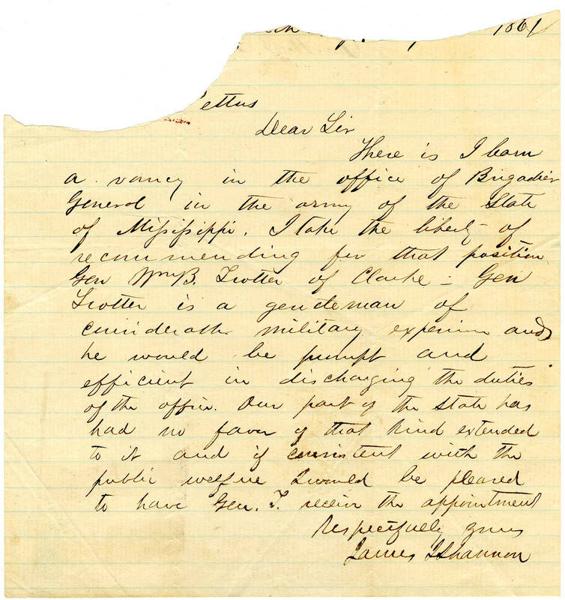 1861
ettus
Dear Sir
There is I learn
a vancy in the office of Brigadier
General in the army of the State
of Mississippi. I take the liberty of
recommending for that position
Gen Wm B. Trotter of Clarke - Gen
Trotter is a gentleman of
considerable military experience and
he would be prompt and
efficient in discharging the duties
of the office. Our part of the state has
had no favor of that kind extended
to it and if consistent with the
public welfare I would be pleased
to have Gen. T. receive the appointment
Respectfully yours
James J Shannon